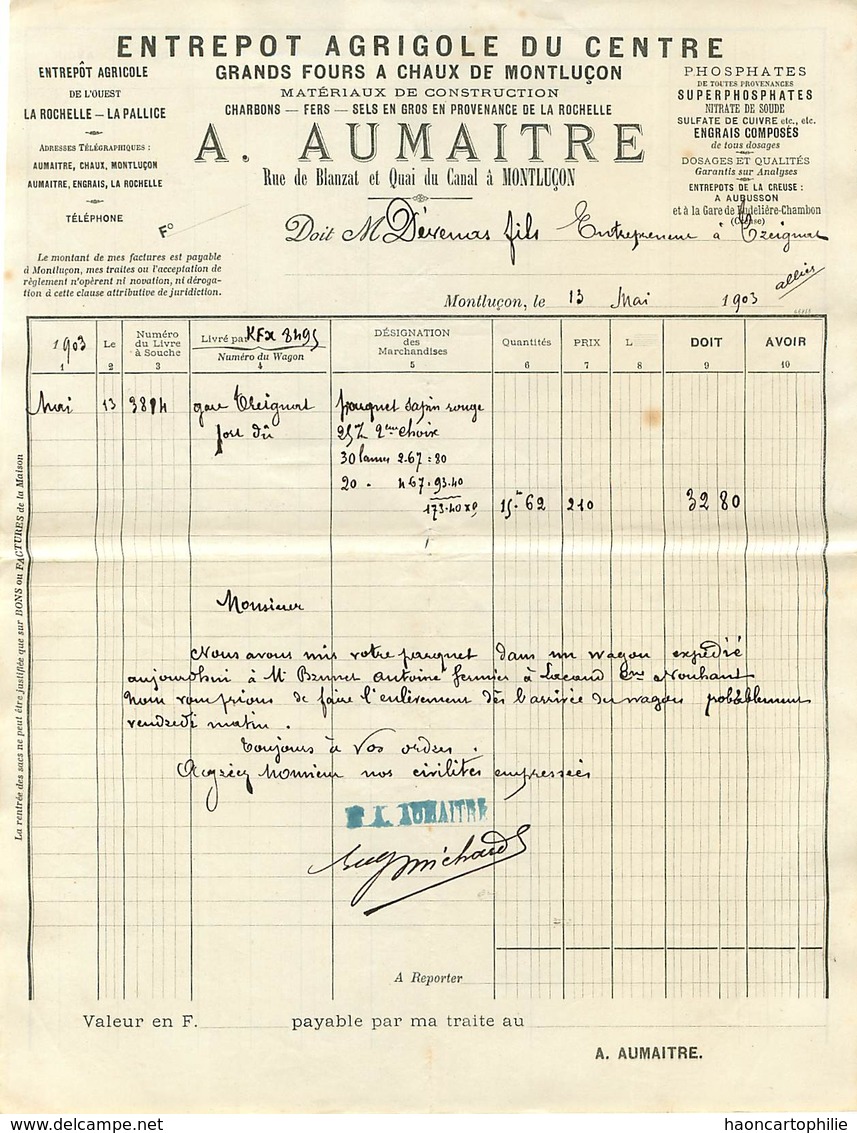 ENTREPOT AGRICOLE DU CENTRE
GRANDS FOURS A CHAUX DE MONTLUÇON
MATÉRIAUX DE CONSTRUCTION
CHARBONS — FERS — SELS EN GROS EN PROVENANCE DE LA ROCHELLE
A. AUMAITRE
Rue de Blanzat et Quai du Canal à MONTLUÇON
ENTREPÔT AGRICOLE
DE L'OUEST
LA ROCHELLE — LA PALLICE
ADRESSES TÉLÉGRAPHIQUES :
AUMAITRE, CHAUX, MONTLUÇON
AUMAITRE, ENGRAIS, LA ROCHELLE
TÉLÉPHONE
F°
PHOSPHATES
DE TOUTES PROVENANCES
SUPERPHOSPHATES
NITRATE DE SOUDE
SULFATE DE CUIVRE etc., etc.
ENGRAIS COMPOSÉS
de tous dosages
DOSAGES ET QUALITÉS
Garantis sur Analyses
ENTREPOTS DE LA CREUSE :
A AUBUSSON
et à la Gare de Budelière-Chambon
(Creuse)
Le montant de mes factures est payable
à Montluçon, mes traites ou l'acceptation de
règlement n'opèrent ni novation, ni déroga-
tion à cette clause attributive de juridiction.
Doit M Dévenas fils Entrepreneur à Treignat
allier
Montluçon, le 13 Mai 1903
1903 Le Numéro du Livre à Souche Livré par KFx 8495 Numéro du Wagon DÉSIGNATION des Marchandises Quantités PRIX L DOIT AVOIR
1 2 3 4 5 6 7 8 9 10
Mai 13 3814 gare Treignat parquet sapin rouge
port dû 25% 2me choix
30 lames 2.67 = 80
20 - 467 = 93.40
173.40 x 9 15m 62 210 32 80
Monsieur
Nous avons mis votre parquet dans un wagon expédié
aujourdhui à Mr Brunet Antoine fermier à Lacaud Cne Nouhant
Nous vous prions de faire l'enlèvement dès l'arrivée du wagon probablement
vendredi matin.
Toujours à vos ordres.
Agréez Monsieur nos civilités empressées
A. AUMAITRE
A Reporter
La rentrée des sacs ne peut être justifiée que sur BONS ou FACTURES de la Maison
Valeur en F. payable par ma traite au
A. AUMAITRE.
delcampe.net
haoncartophilie